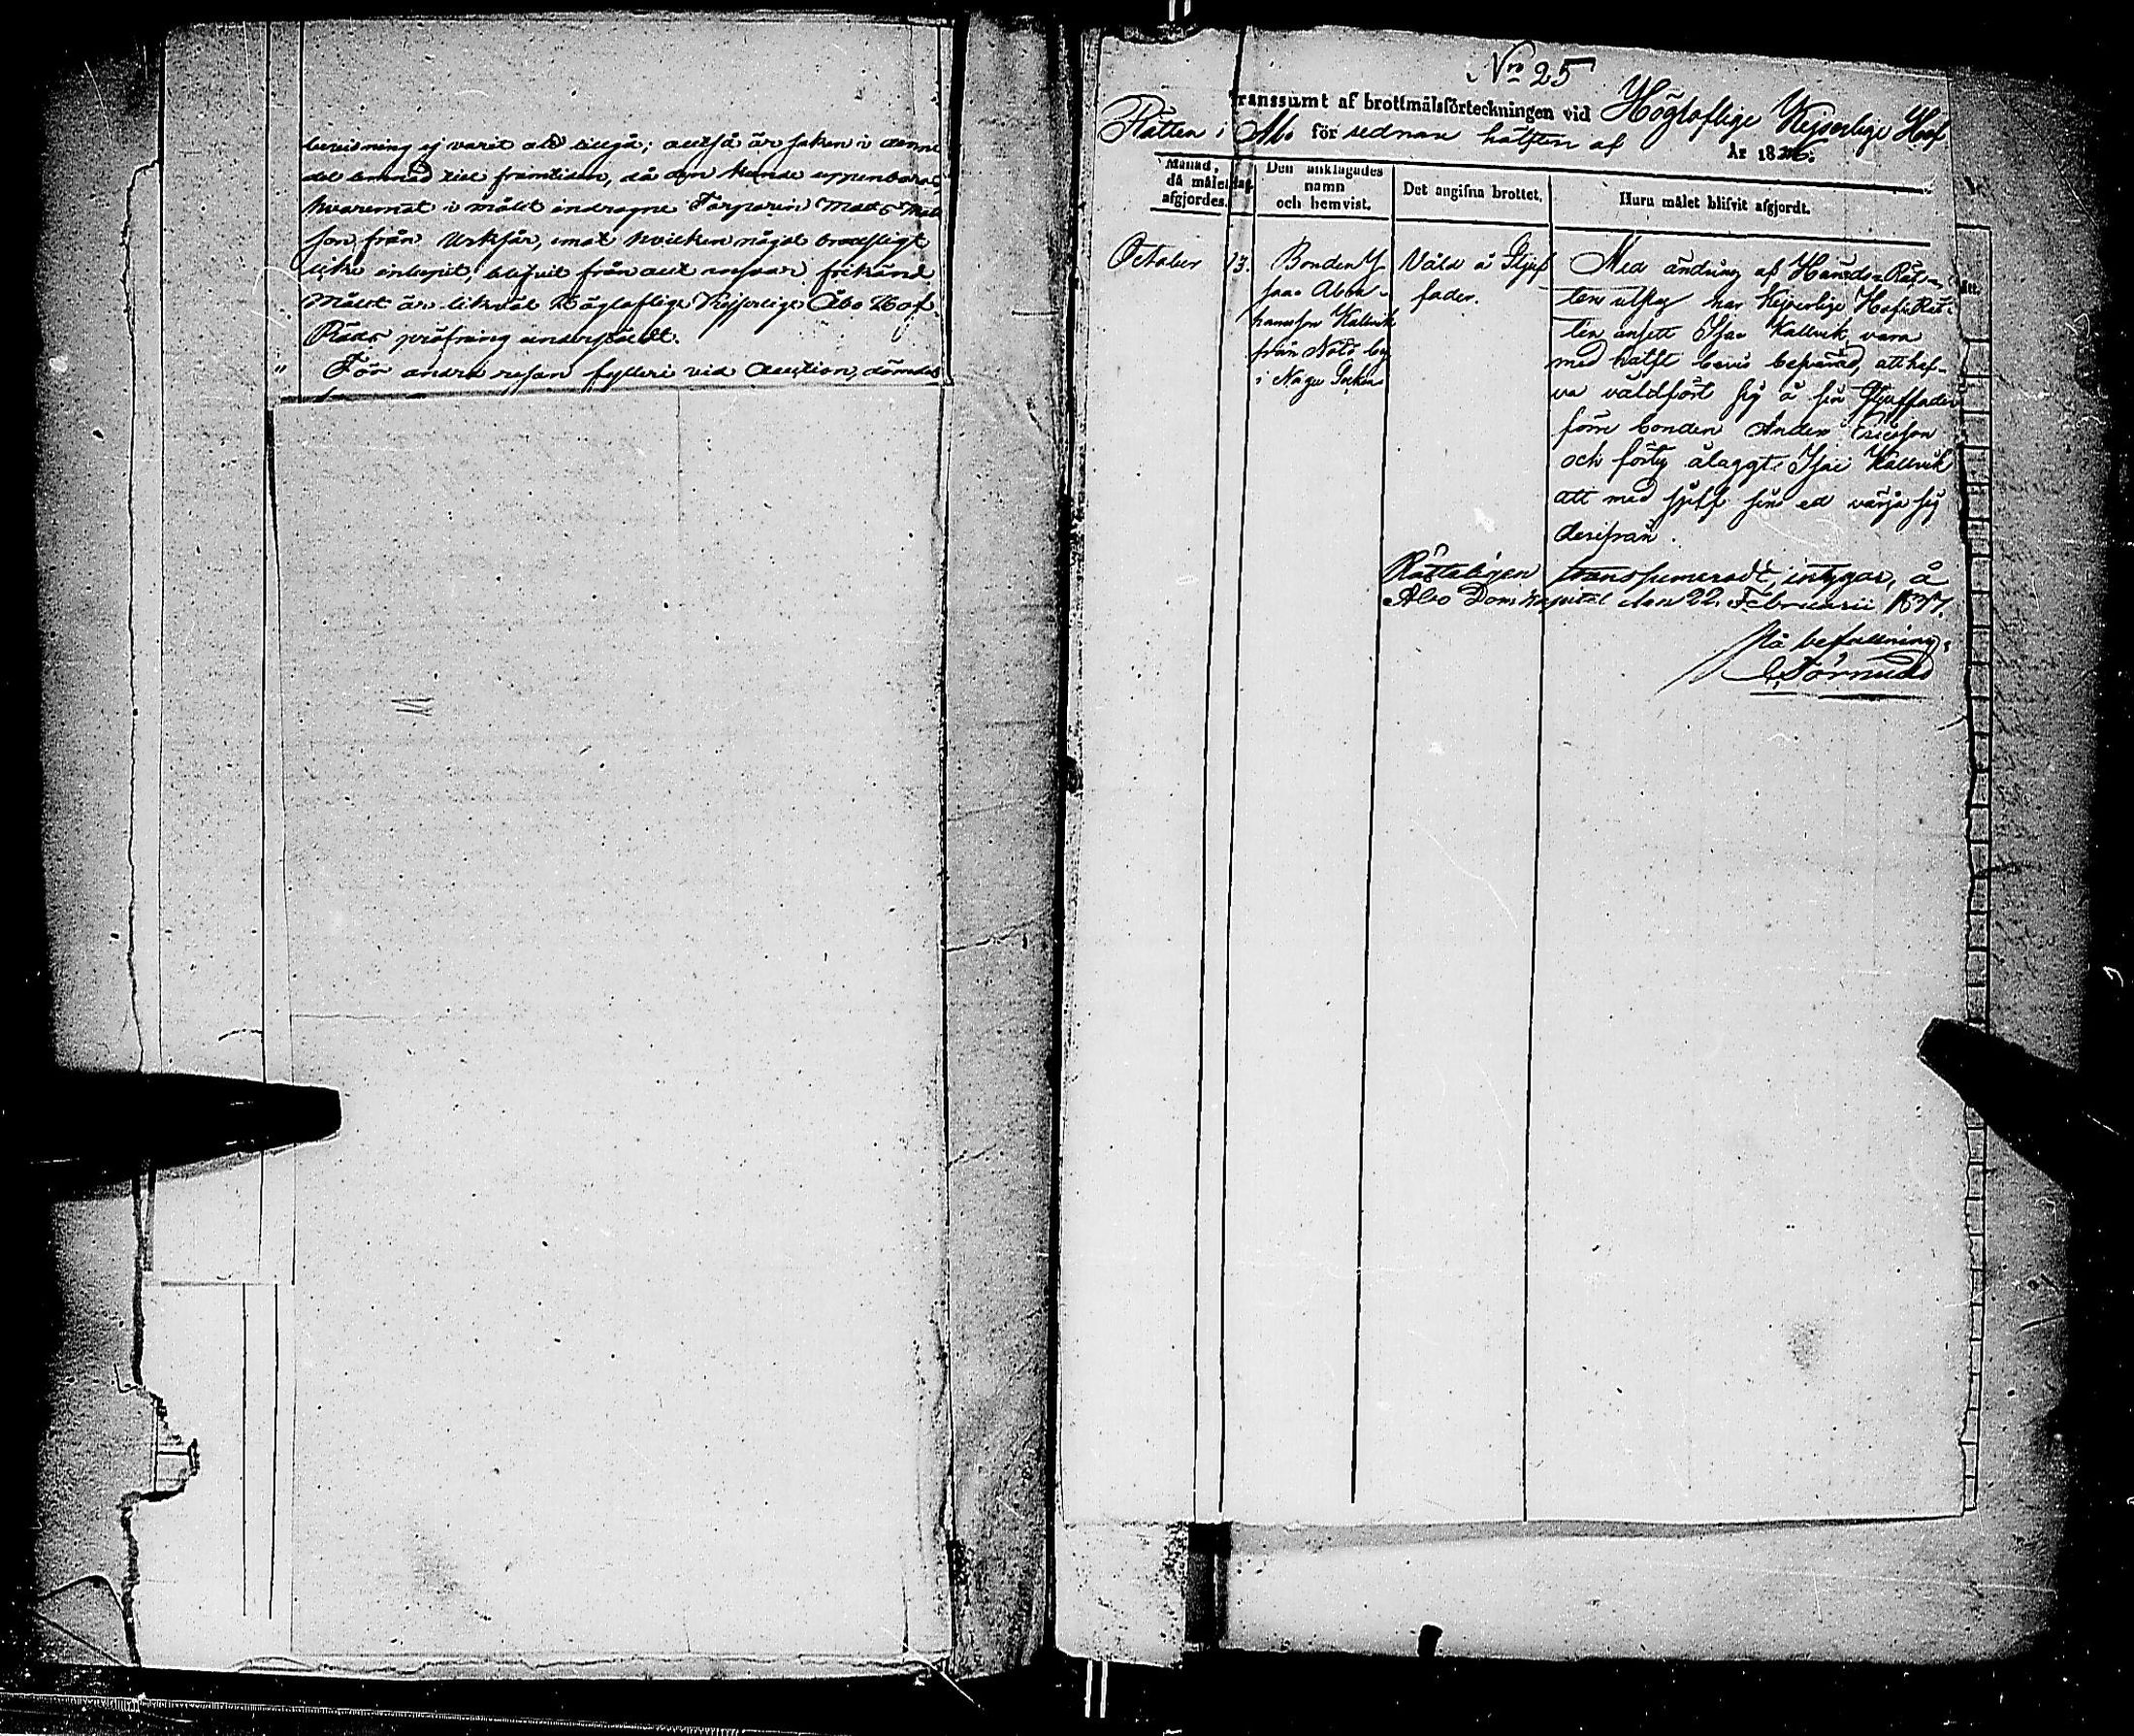 bevisning ej varit att tillgå; alltså är saken i denne
del lemnad till framtiden, då den kunde uppenbaras
hvaremot i målet indragne Torparen Matts Mat
son från Urkfär, imot hvilken något brottsligt
icke inlupit, blifvit från allt ansvar frikänd
Målet är likväl Högloflige Kejserlige Åbo Hof
Rätts pröfning underställdt.
" För andra resan fylleri vid Auction, dömdes
Nro 25
Transsumt af brottmålsförteckningen vid Höglofliga Kejserliga Hof
Rätten i Åbo för sednare hälften af År 18
Månad, då målet afgjordes.
dag.
Den anklagades namn och hemvist.
Det angifna brottet.
Huru målet blifvit afgjordt.
October 13.
Bonden I
saac Abra-
hamsson Kallvik
från Nötö by
i Nagu Socken
Våld å Stjuf
fader.
Med ändring af Härads Rät-
tens utslag har Kejserlige Hof Rät-
ten ansett Isac Kallvik vara
med hälft bevis besvärad, att haf-
va våldfört sig å sin Stjuffader
förre bonden Anders Ericsson
och förty ålaggt Isac Kallvik
att med sjelf sins ed värja sig
derifrån.
Rätteligen transsumeradt, intygar, å
Åbo Domkapitel den 22. Februarii 1837.
På befallning:
C. Törnudd
ått.